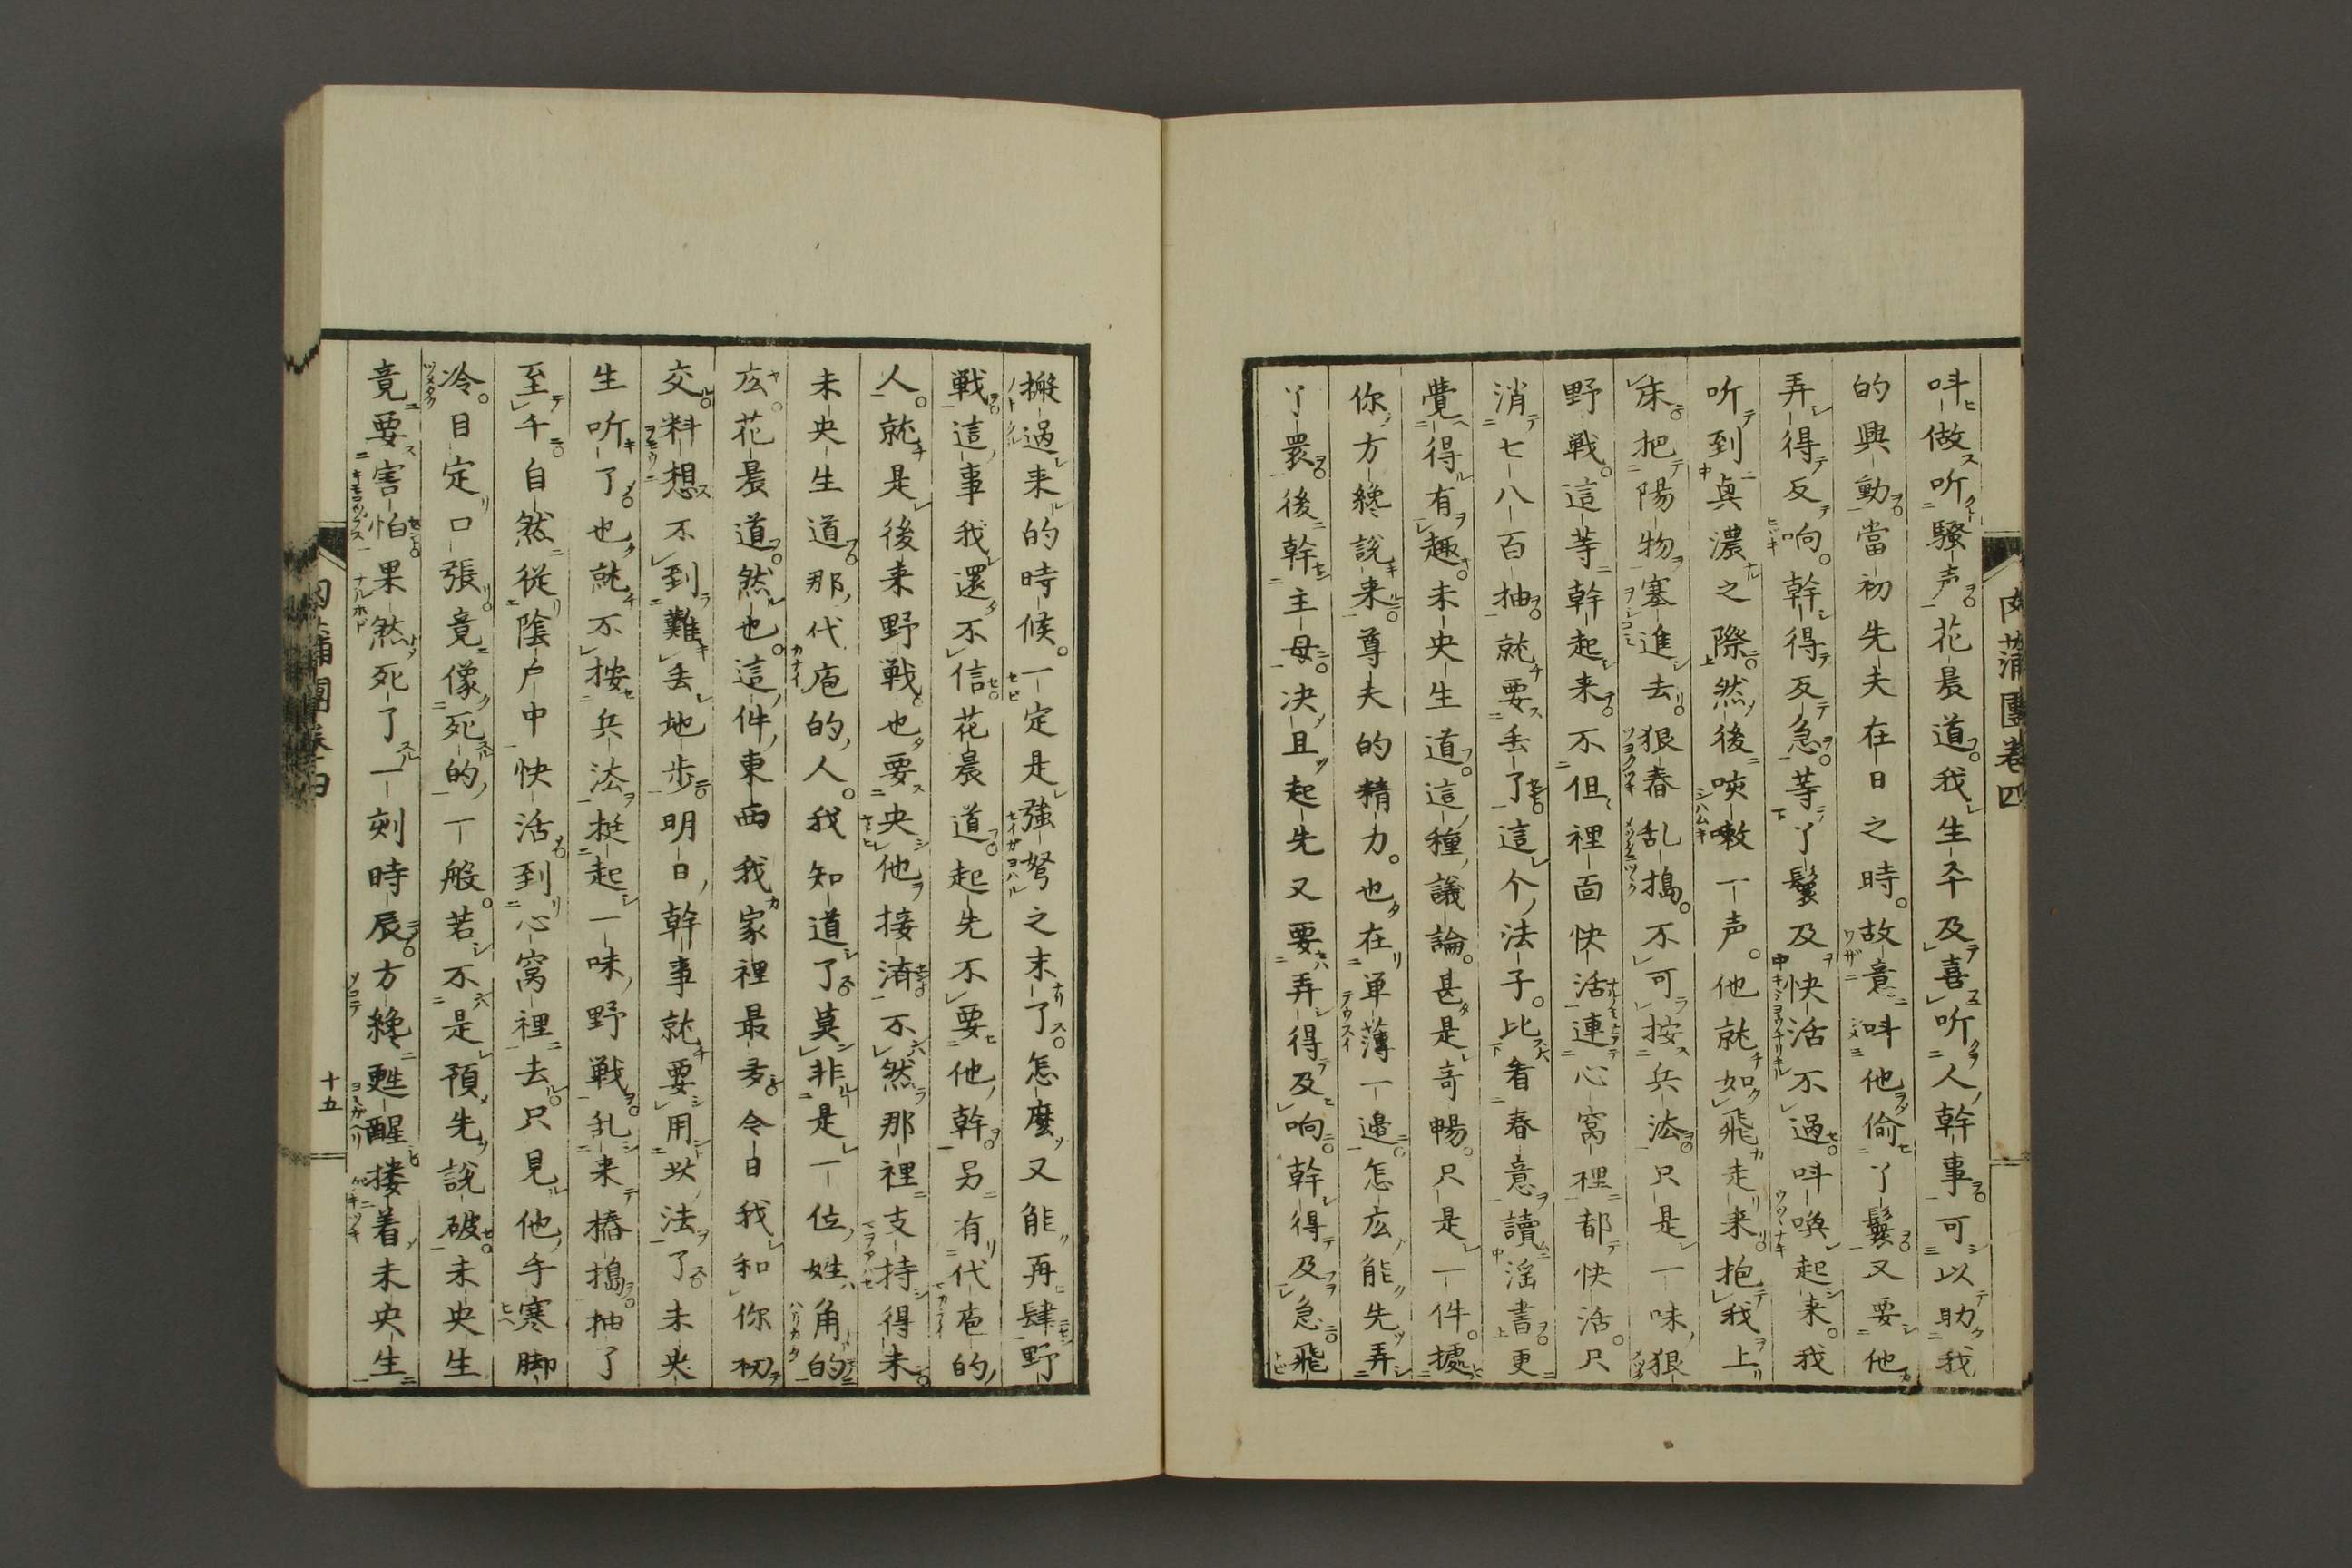 肉蒲團卷四
叫做听騷声花晨道我生平及喜听人幹事可以助我
的興動當初先夫在日之時故意叫他偷了鬟又要他
弄得反响幹得反急等了鬟及快活不過叫喚起来我
听到興濃之際然後咳嗽一声他就如飛走来抱我上
床把陽物塞進去狠舂乱搗不可按兵法只是一味狠
野戦這等幹起来不但裡面快活連心窩裡都快活只
消七八百抽就要丢了這个法子比看春意讀淫書更
覺得有趣未央生道這種議論甚是奇暢只是一件據
你方纔說来尊夫的精力也在単薄一邉怎広能先弄
了鬟後幹主母决且起先又要弄得及响幹得及急飛
搬過来的時候一定是強弩之末了怎麼又能再肆野
戦這事我還不信花晨道起先不要他幹另有代庖的
人就是後来野戦也要央他接済不然那裡支持得来
未央生道那代庖的人我知道了莫非是一位姓角的
広花晨道然也這件東西我家裡最多今日我和你初
交料想不到難丢地歩明日幹事就要用此法了未央
生听了也就不按兵法挺起一味野戦乱来摏搗抽了
至千自然従陰户中快活到心窩裡去只見他手寒脚
冷目定口張竟像死的一般若不是預先說破未央生
竟要害怕果然死了一刻時辰方纔甦醒摟着未央生
十五